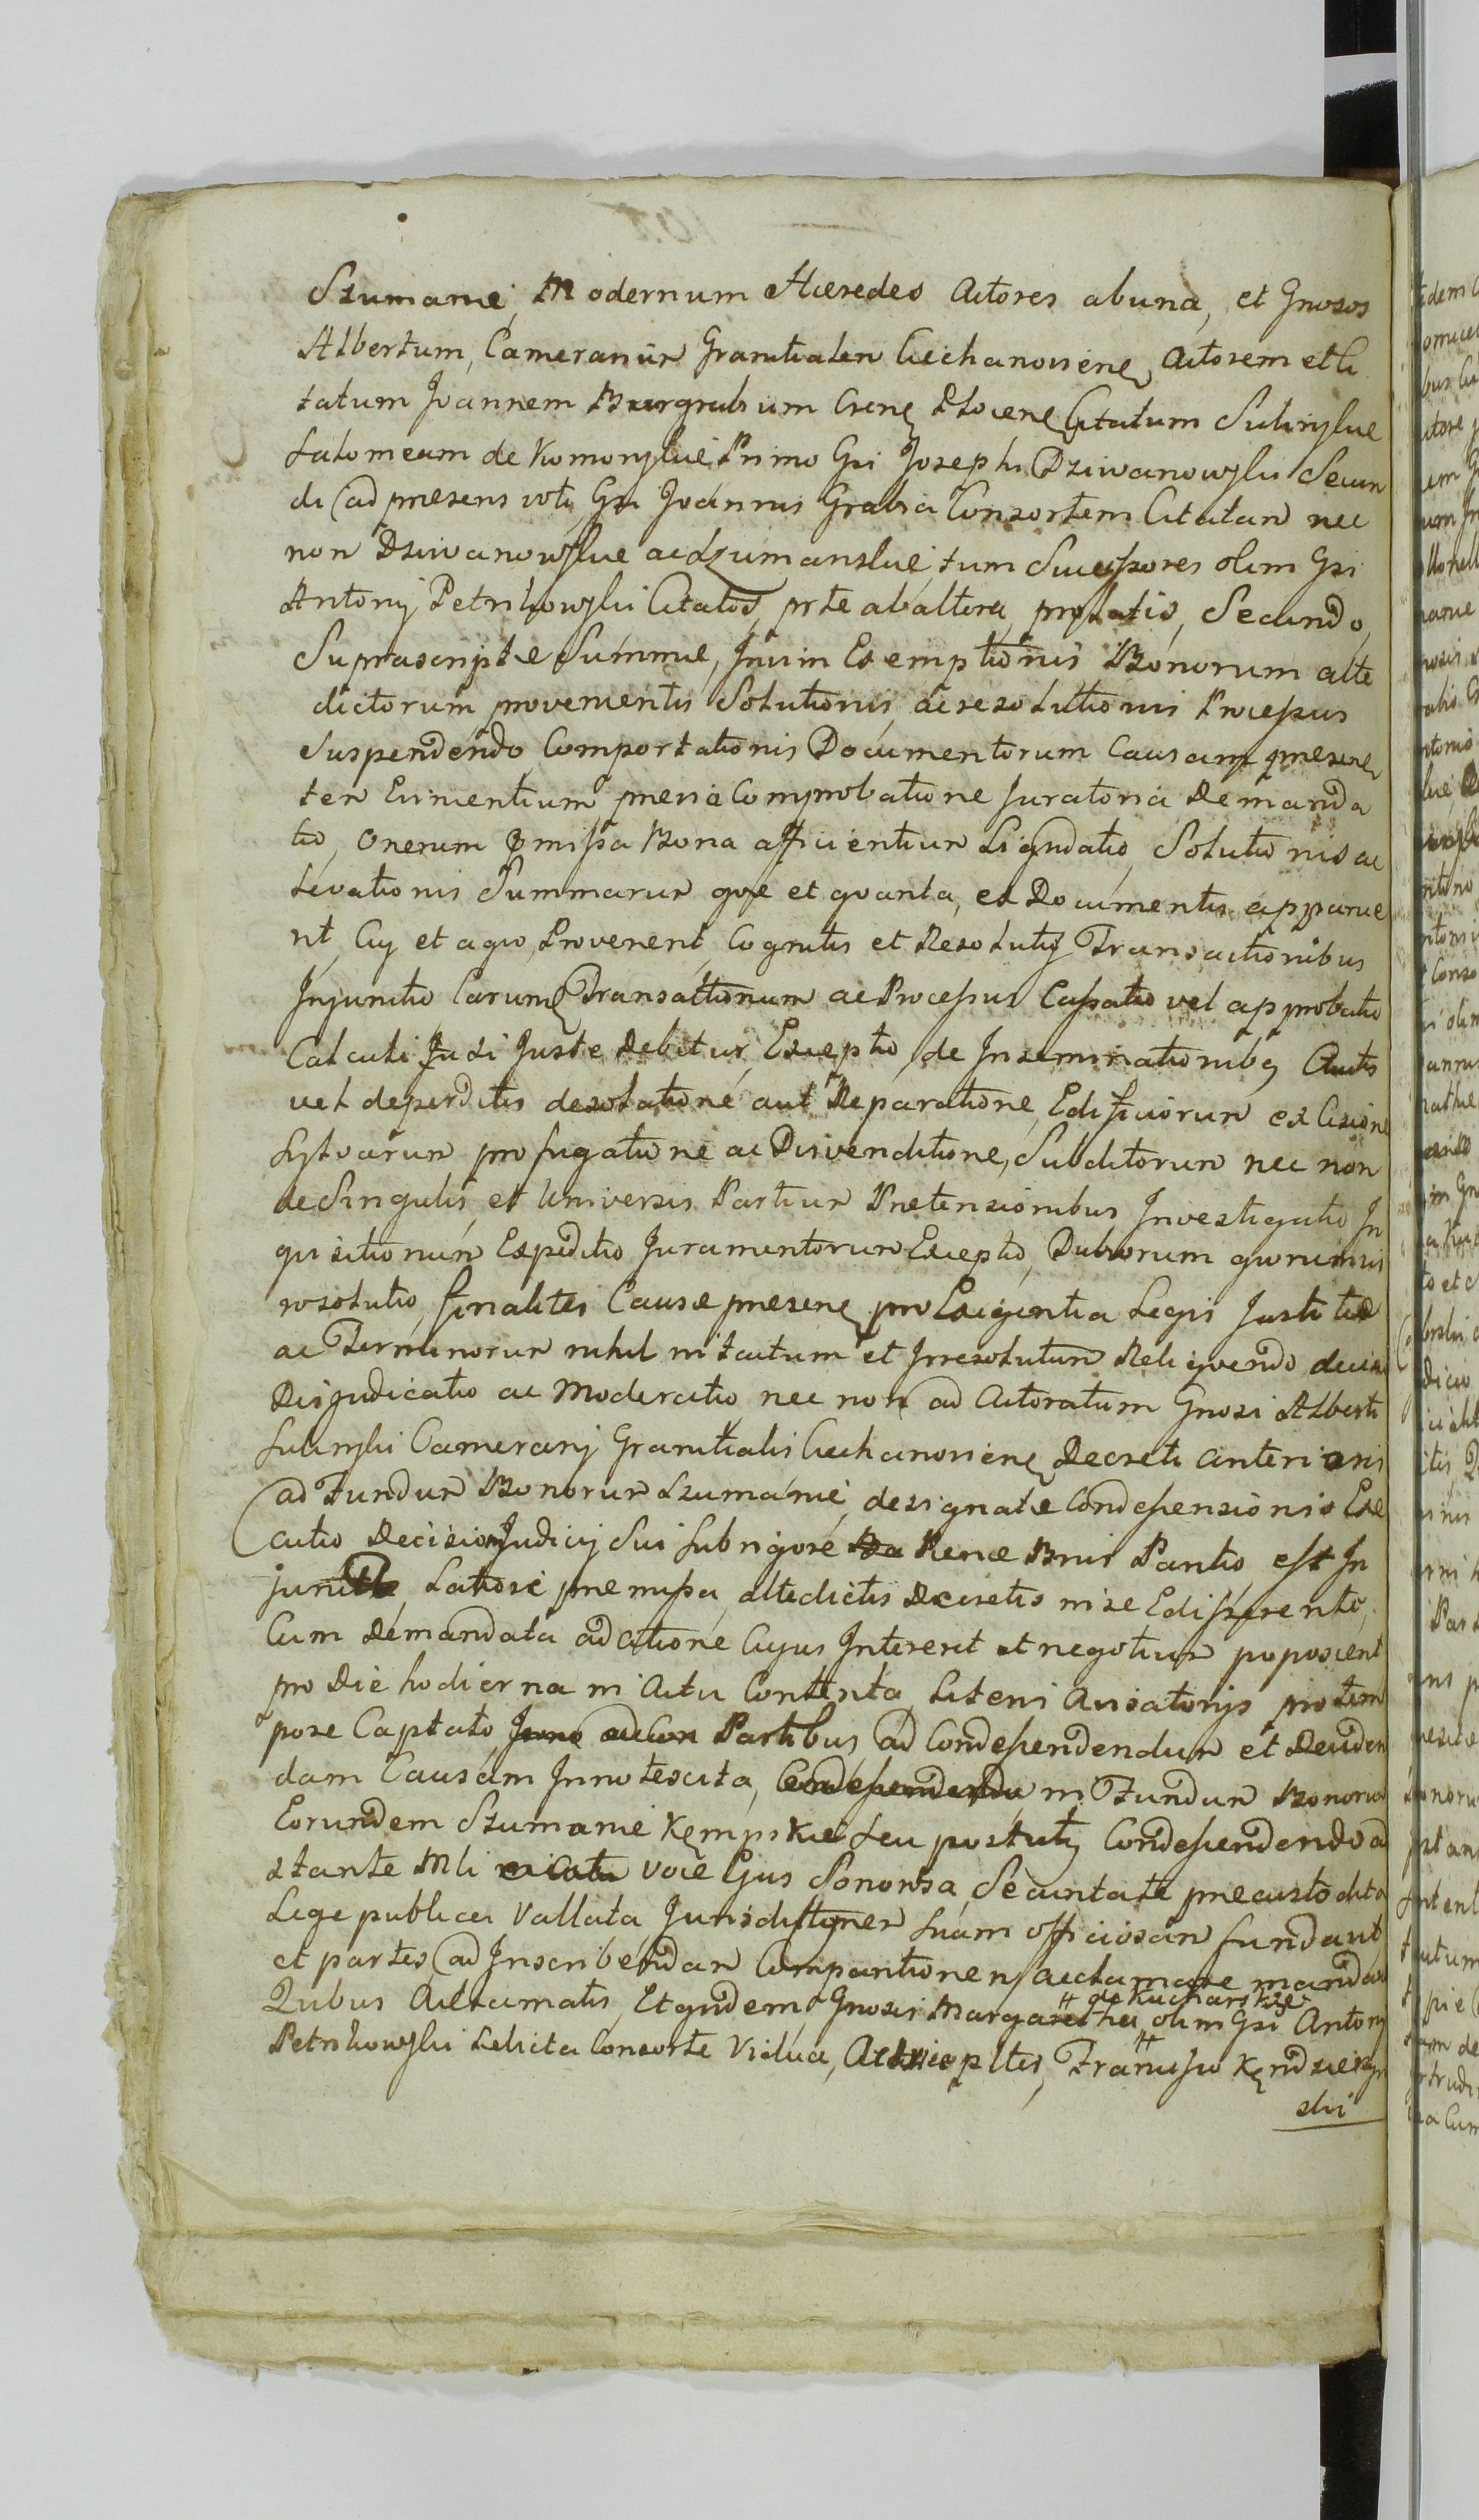 Szumanie, Modernum Hæredes Actores abuna, et Gnosos
Albertum, Cameranūr Granitialen Ciechanoviene, Actorem et Ci
tatum Joannem Burgrabium Crcne Plocene Citatum Sulinskie
Salomeam de Komorskie Primo Gsi Josephi Dziwanowski Secun
di ad præsens voti Gsi Joannis Grabia Consortem Citatan nec
non Dziwanowskie ac Szumanskie, tum Successores olim Gsi
Antonij Petrikowski Citatos, prte abaltera, prolatis, Secundo,
Suprascriptæ Summæ, Jnvim Exemptionis Bonorum alte
dictorum provenientis Solutionis, ac resolutionis Processus
Suspendendo Comportationis Documentorum Causam præsene
ter Evinentium prævia Comprobatione juratoria Demanda
tio, Onerum Omissa Bona afficientiur Liqudatio, Solutionis ac
Levationis Summarur quæ et quanta, ex Documentis apparue
nt, Cuj et aquo, Provenent, Cognitis et Resolutis Transactionibus
Jnjunctio Earume Transactionum ac Processus Cassatio vel approbatio
Calculi Jusi Juste Debetur, Exceptio, de Jnseminationibq Auctis
vel deperditis desolatione aut Reparatione, Edificiorun exlisione
Sylvarun profugatione ac Divenditione, Subditorun nec non
de Singulis, et Universis Partiur Prætensionibus Jnvestigatio Jn
quisitionun Expeditio Juramentorun Exceptio, Dubiorum quorumvis
resolutio, finaliter Causæ præsene pro Exigentia Legis Justitiæ
ac Terminorur nihil intactum et Jrresolutun Reliquendo decisio
Disjudicatio ac Moderatio nec non ad Actoratum Gnosi Alberti
Sulinski Cameranj Granitialis Ciechanoviene Decreti anterioris
ad Fundur Bonorur Szumanie, designatæ Condescensionis Exe
cutio Decisio Judicij Sui sub rigore Penæ Bnis Pantio, est Jn
juncta Latiori præmissa, altedictis Decretis in se Edisserente,
Cum Demandata ad Catione Cujus Jntererit et negotiur poposcerit
pro Die hodierna in Actu Contenta, Literis Avisatorijs pro tem
pore Captato Partibus ad Condescendendun et Deciden
dam Causam Jnnotescita, in Fundun Bonorur
Eorundem Szumanie Kępskie Seu postulq Condescendendo ad
stante Mli voce Ejus Sonorosa, Securitate præcustodita
Lege publica Vallata Jurisdictioner Suam officiosan fundavit
et partes ad Jnscribendan Comparitionem acclamare mandav
Quibus Acclamatis, Et quidem, Gnosis Margaretha # de Kucharskie olim Gsi Antonj
Petrikowski relicta Consorte Vidua, Actrice pltes, # Francisco Kendzierzyn
ski